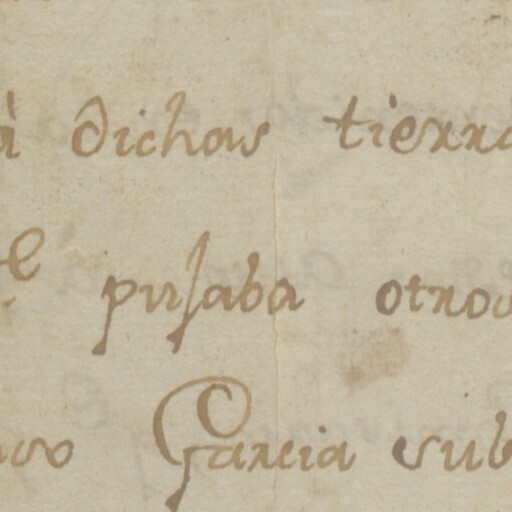 à dichas tierra
e pusaba otros
Garcia sub